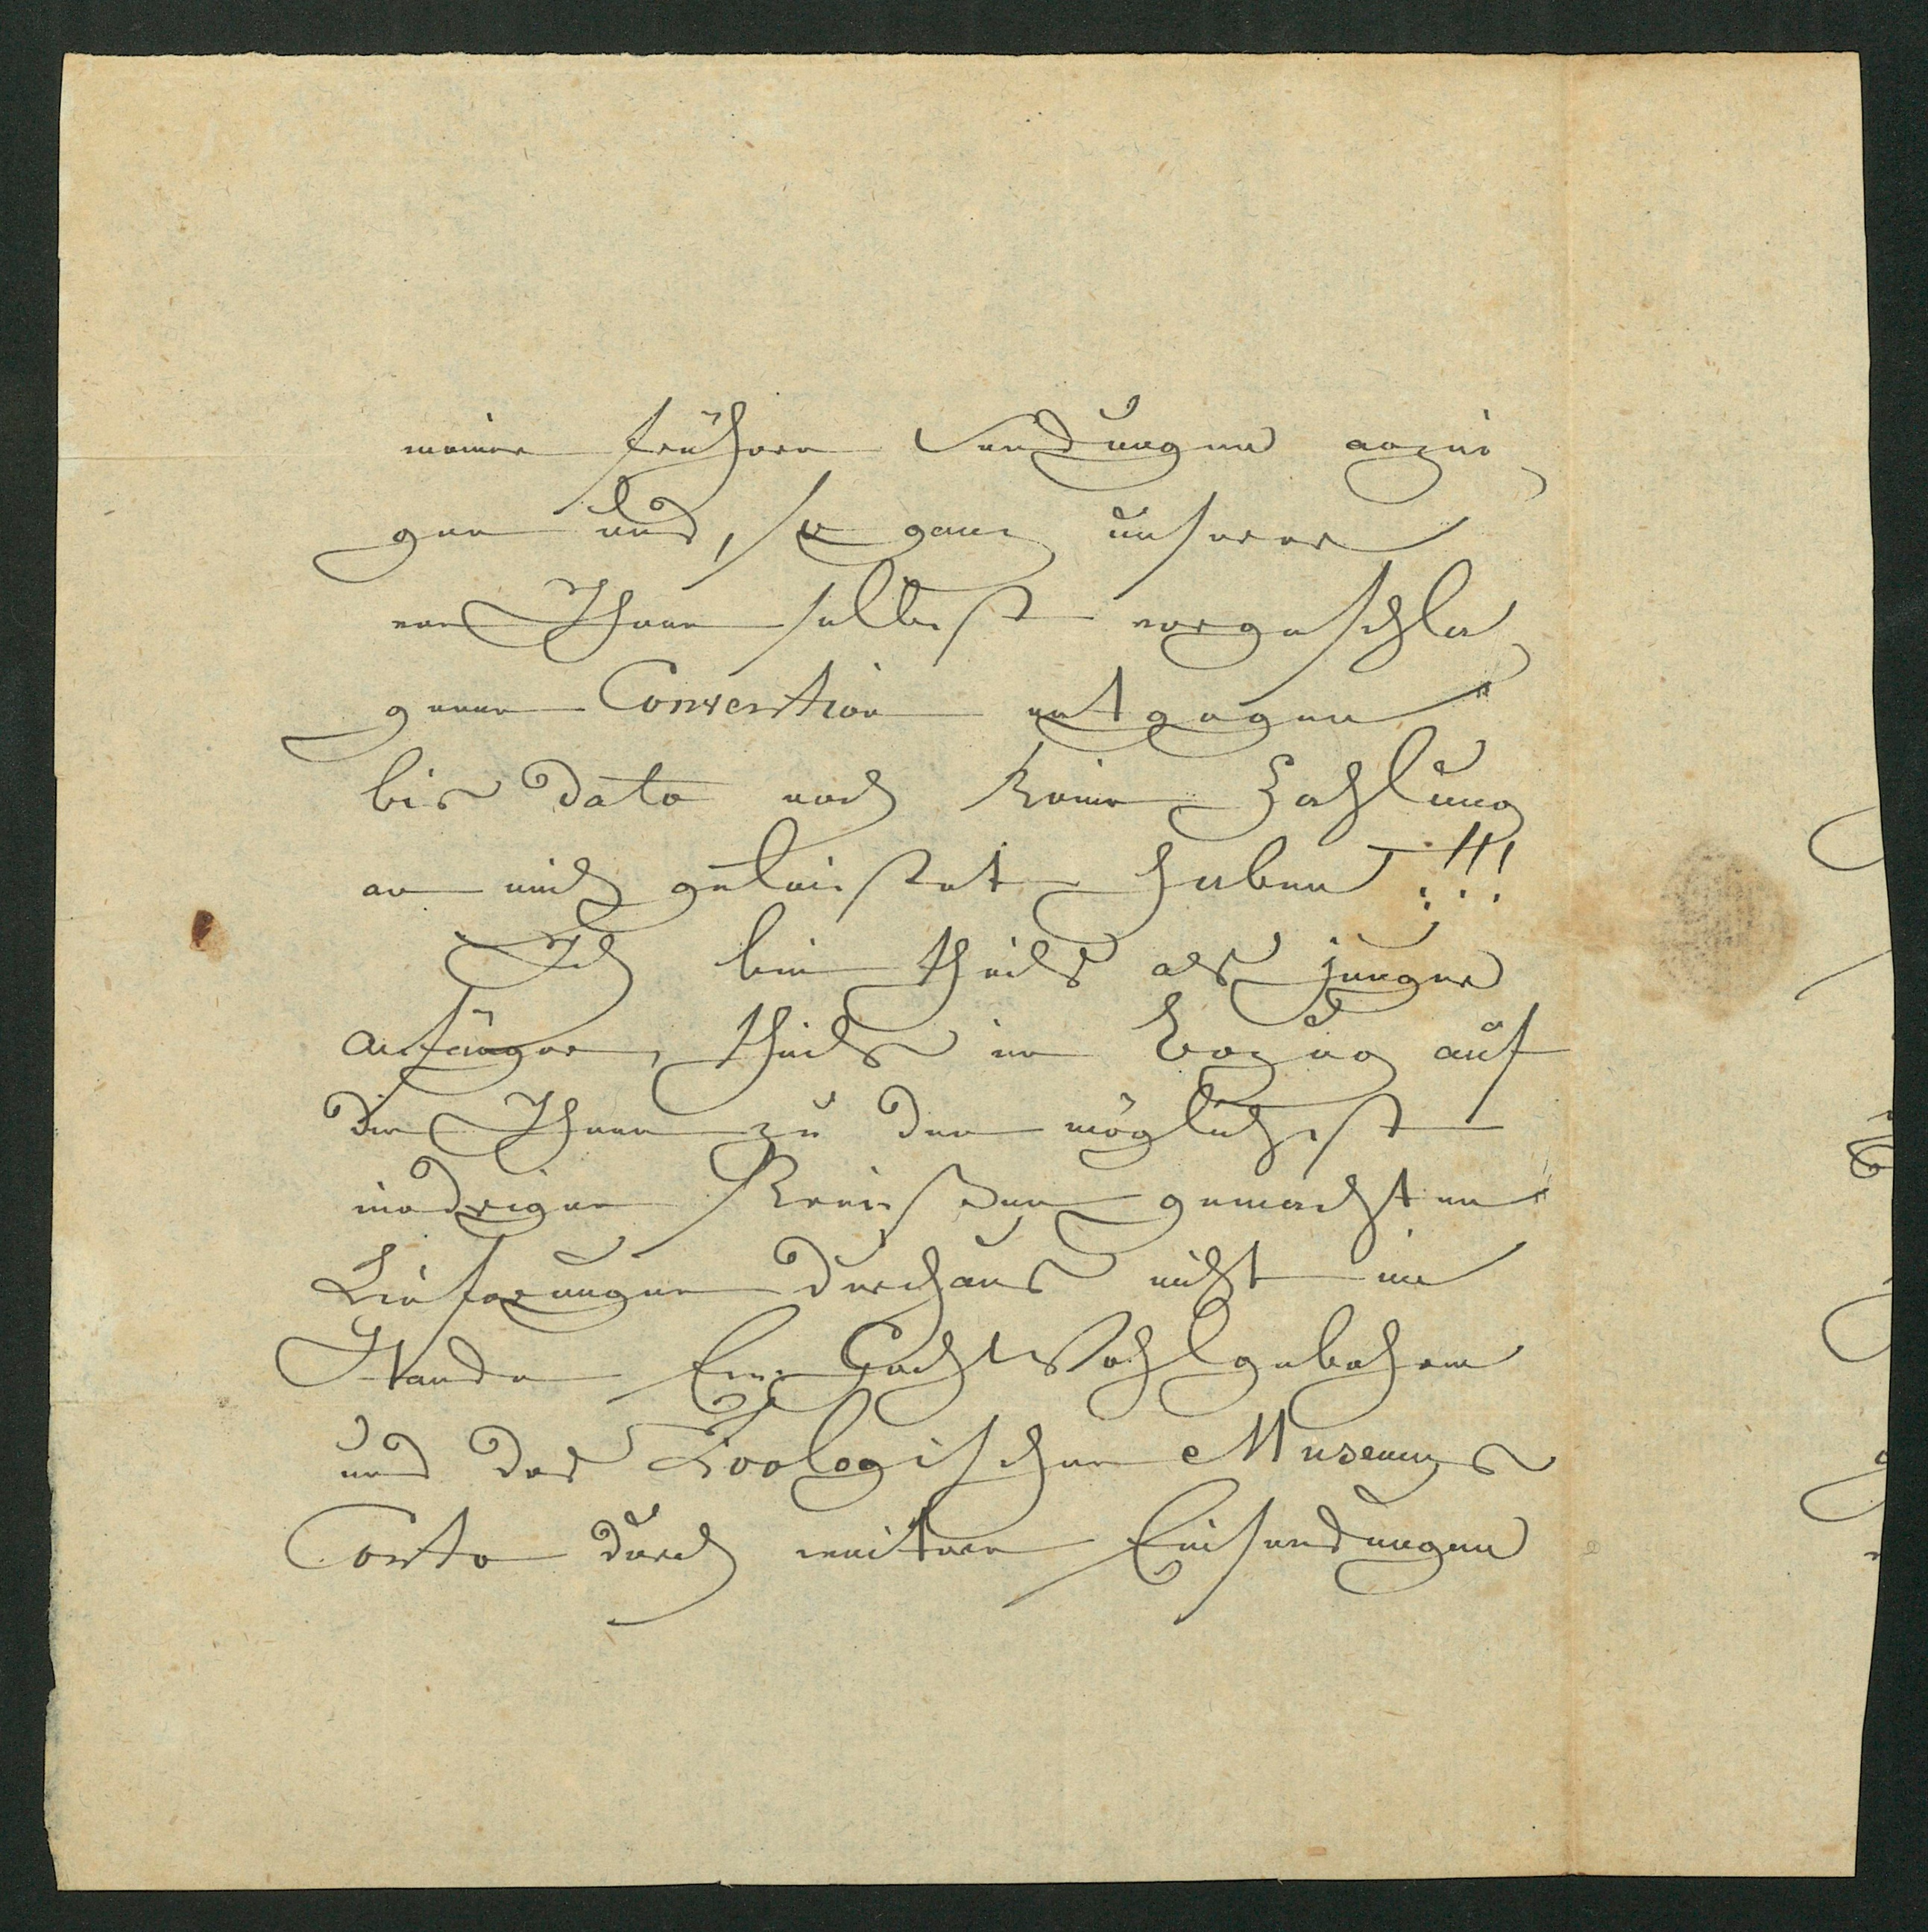 meiner frühern Sendungen anzei¬
gen und, so ganz unserer
von Ihnen selbst vorgeschla¬
genen Convention entgegen
bis dato noch keine Zahlung
an mich geleistet haben!!!
Ich bin theils als junger
Anfänger, theils in Bezug auf
die Ihnen zu den möglichst
niedrigen Preisen gemachten
Lieferungen durchaus nicht im
Stande Eur. Hochwohlgebohren
und des Zoologischen Museums
Conto durch weitere Einsendungen